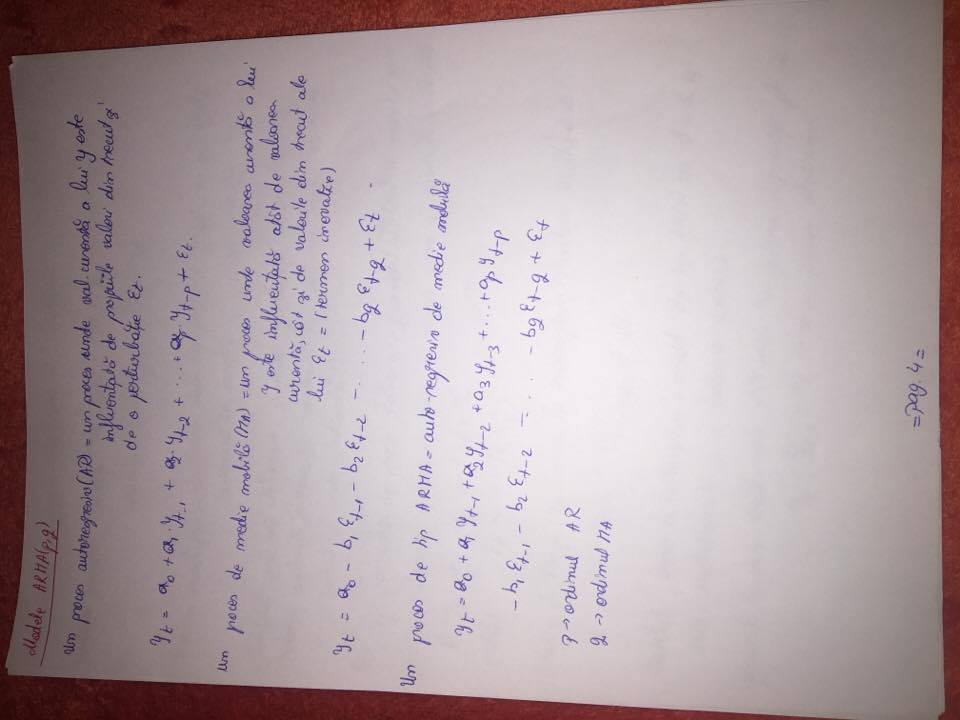 Modele ARMA(p,q)
Un proces autoregresiv (AR) = un proces unde val. curentă a lui y este
influentată de propriile valori din trecut și
de o perturbație εt.
yt = a0 + a1·yt-1 + a2·yt-2 + ... + ap·yt-p + εt.
Un proces de medie mobilă (MA) = un proces unde valoarea curentă a lui
y este influentată atât de valoarea
curentă, cât și de valorile din trecut ale
lui εt = (termen inovație)
yt = a0 - b1 εt-1 - b2 εt-2 - ... - bq εt-q + εt
Un proces de tip ARMA = auto-regresiv de medie mobilă
yt = a0 + a1 yt-1 + a2 yt-2 + a3 yt-3 + ... + ap yt-p
- b1 εt-1 - b2 εt-2 - ... - bq εt-q + εt
p → ordinul AR
q → ordinul MA
= pag. 4 =